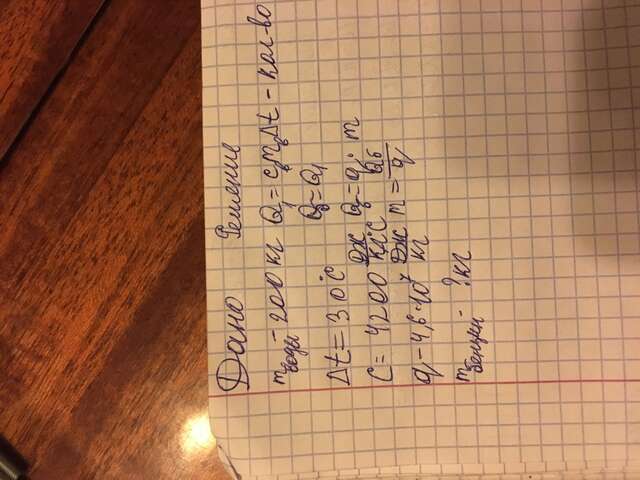 Дано Решение
m воды - 200 кг Q₁ = cвmвΔt - кол-во
Qб = Q₁
Δt = 30°C
Qб = q · m
C = 4200 Дж/кг°C
m = Qб/q
q - 4,6·10⁷ Дж/кг
m бензин - ? кг